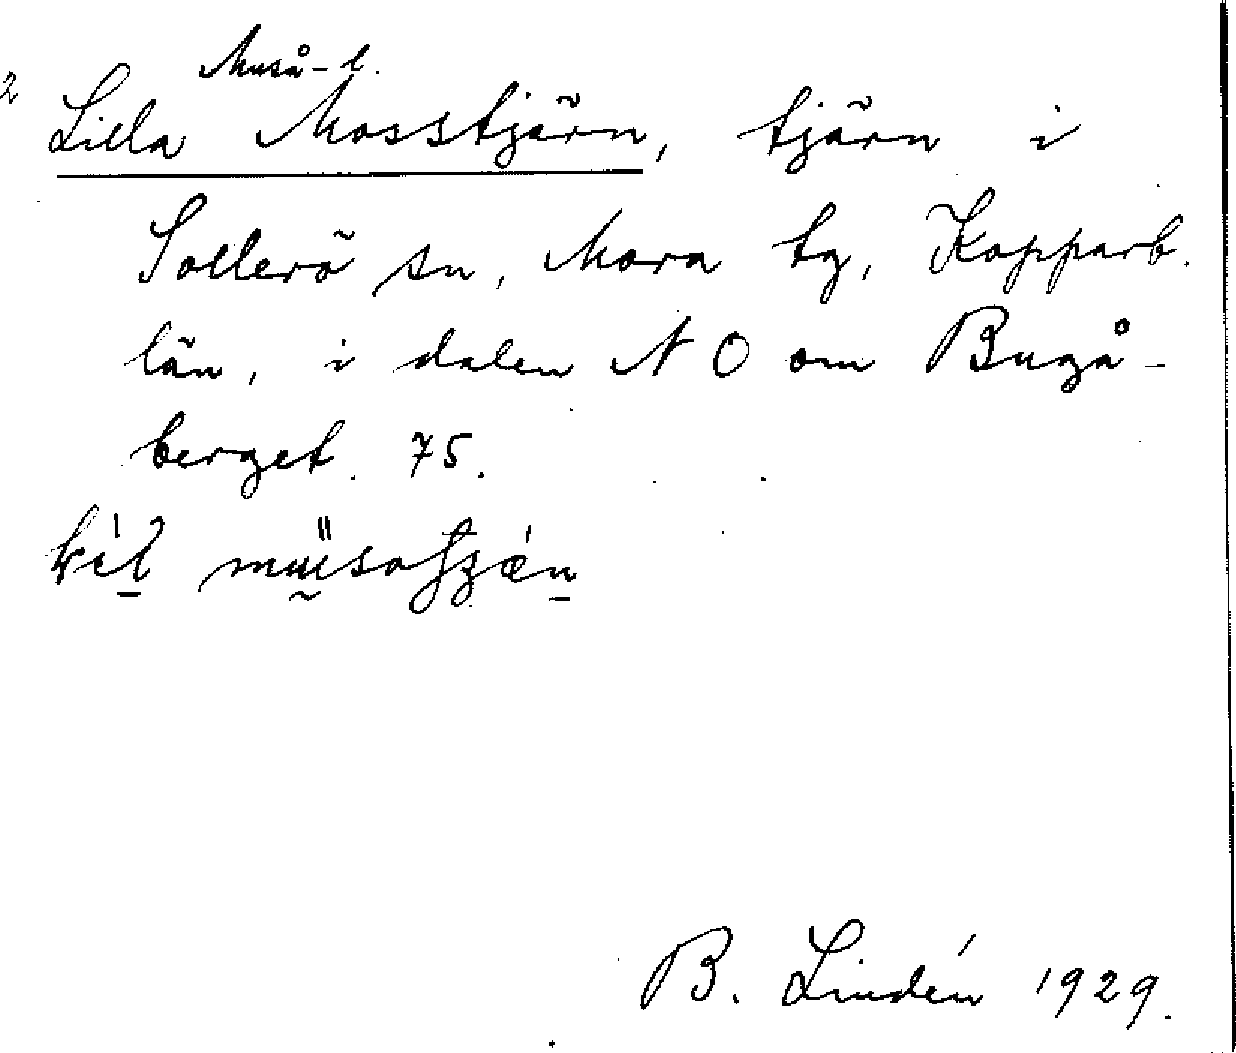 Muså- l.
2 Lilla Mosstjärn, tjärn i
Sollerö sn, Mora tg, Kopparb.
län, i dalen N O om Bugå-
berget. 75.
B. Lindén 1929.